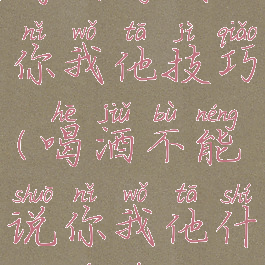 nǐ wǒ tā jì qiǎo
你我他技巧
hē jiǔ bù néng
(喝酒不能
shuō nǐ wǒ tā shí
说你我他什